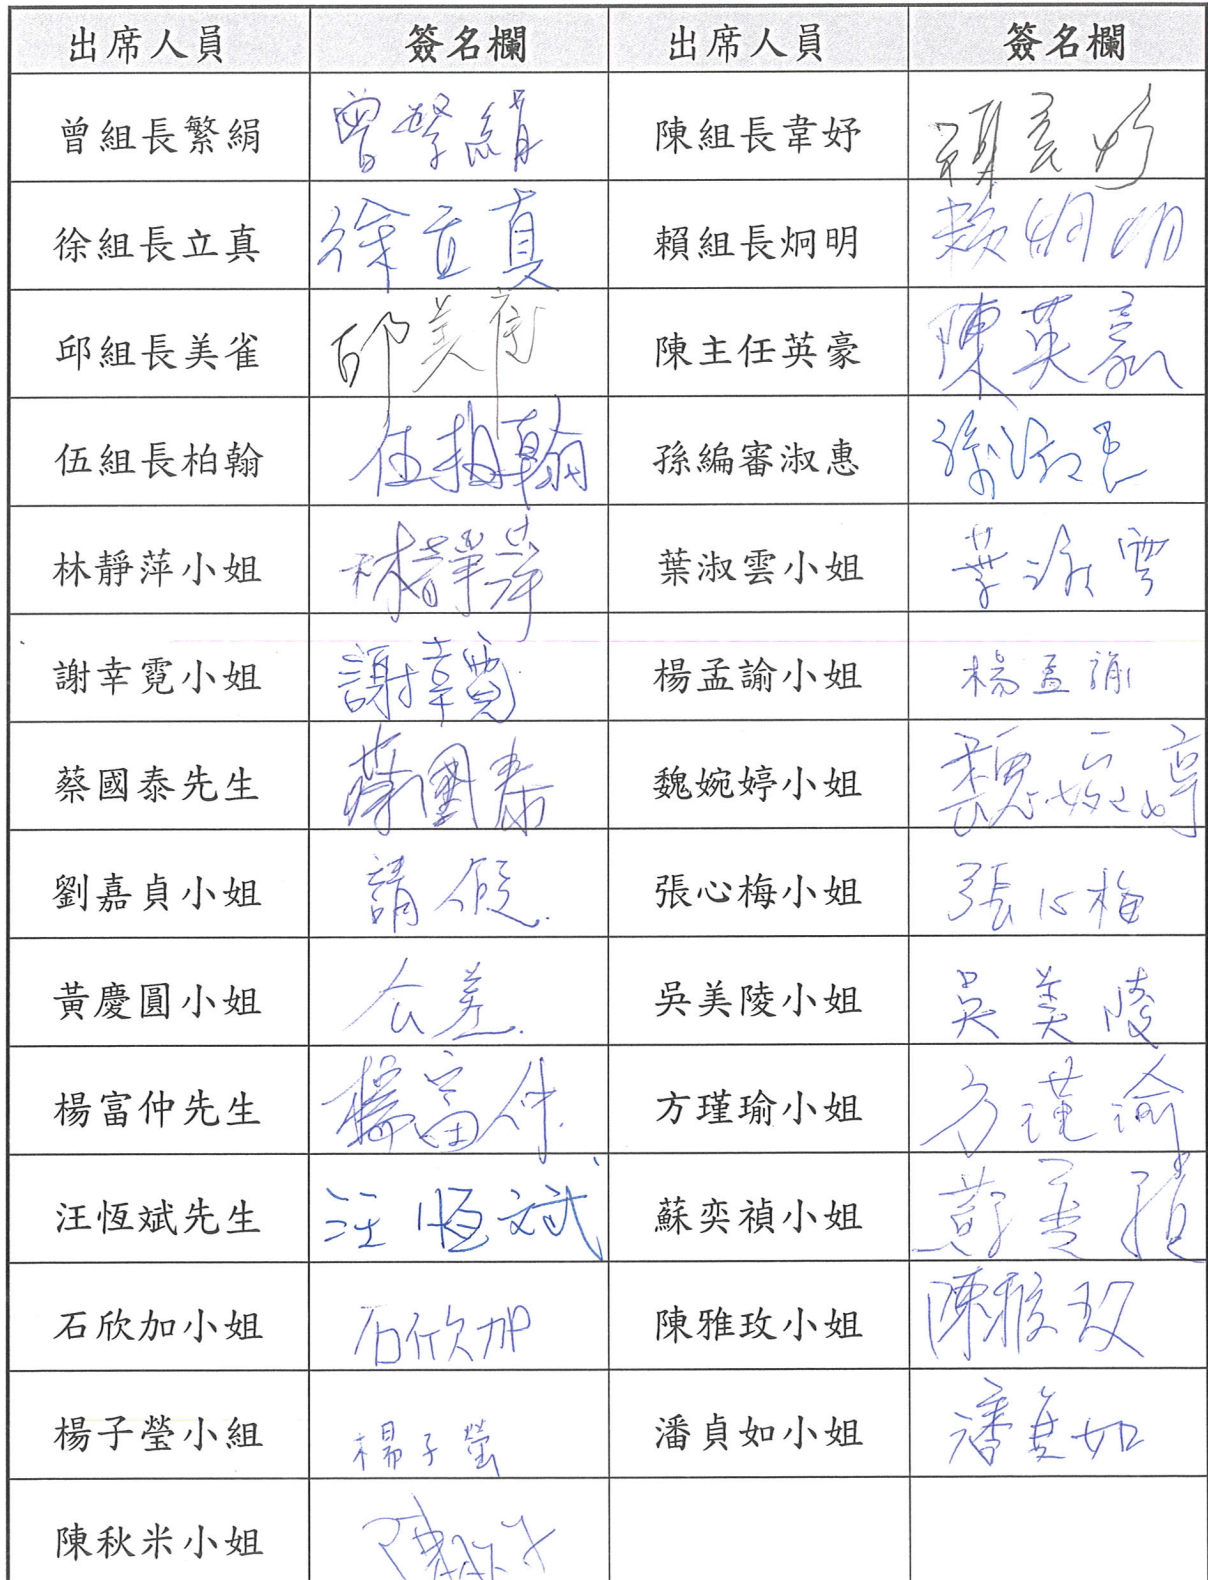 出席人員 簽名欄 出席人員 簽名欄
曾組長繁絹 曾繁絹 陳組長韋妤
徐組長立真 徐立真 賴組長炯明 賴炯明
邱組長美雀 邱美雀 陳主任英豪 陳英豪
伍組長柏翰 伍柏翰 孫編審淑惠 孫淑惠
林靜萍小姐 林靜萍 葉淑雲小姐 葉淑雲
謝幸霓小姐 謝幸霓 楊孟諭小姐 楊孟諭
蔡國泰先生 蔡國泰 魏婉婷小姐 魏婉婷
劉嘉貞小姐 請假. 張心梅小姐 張心梅
黃慶圓小姐 公差. 吳美陵小姐 吳美陵
楊富仲先生 楊富仲. 方瑾瑜小姐 方瑾瑜
汪恆斌先生 汪恆斌 蘇奕禎小姐 蘇奕禎
石欣加小姐 石欣加 陳雅玫小姐 陳雅玫
楊子瑩小組 楊子瑩 潘貞如小姐 潘貞如
陳秋米小姐 陳秋米